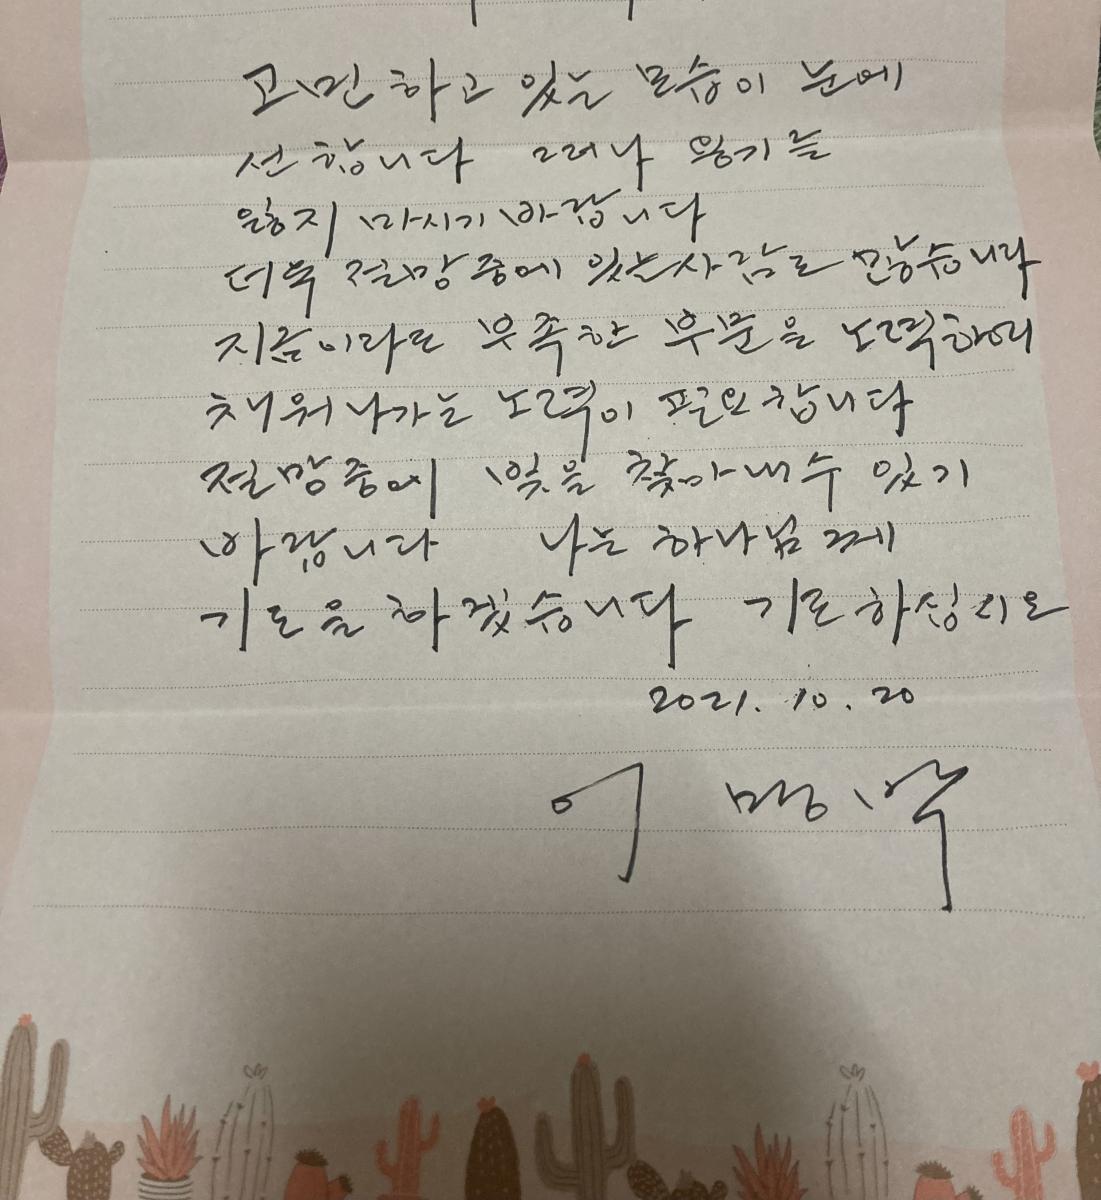 고민하고 있는 모습이 눈에
선합니다 그러나 용기를
잃지 마시기 바랍니다
더욱 절망중에 있는 사람도 많습니다
지금이라도 부족한 부분을 노력하여
채워나가는 노력이 필요합니다
절망중에 빛을 찾아내수 있기
바랍니다 나는 하나님께
기도을 하겠습니다 기도하십시오
2021. 10. 20
이 명 박